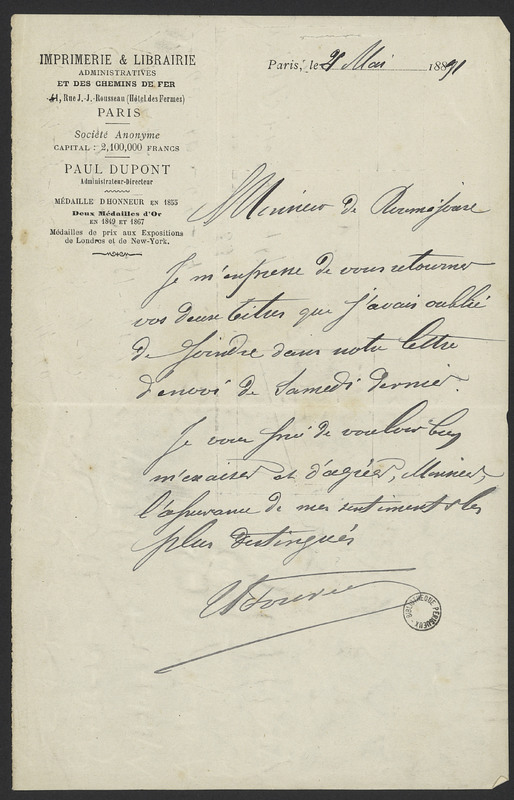 IMPRIMERIE & LIBRAIRIE
ADMINISTRATIVES
ET DES CHEMINS DE FER
41, Rue J.-J.-Rousseau (Hôtel des Fermes)
PARIS
Société Anonyme
CAPITAL : 2,100,000 FRANCS
PAUL DUPONT
Administrateur-Directeur
MÉDAILLE D'HONNEUR EN 1855
Deux Médailles d'Or
EN 1849 ET 1867
Médailles de prix aux Expositions
de Londres et de New-York.
Paris, le Mai 1891
Monsieur de
Je m'empresse de vous retourner
vos deux lettres que j'avais oublié
de joindre dans notre lettre
d'envoi de Samedi dernier.
Je vous prie de vouloir bien
m'excuser et d'agréer, Monsieur,
l'assurance de mes sentiments les
plus distingués
BIBLIOTHEQUE PERIGUEUX